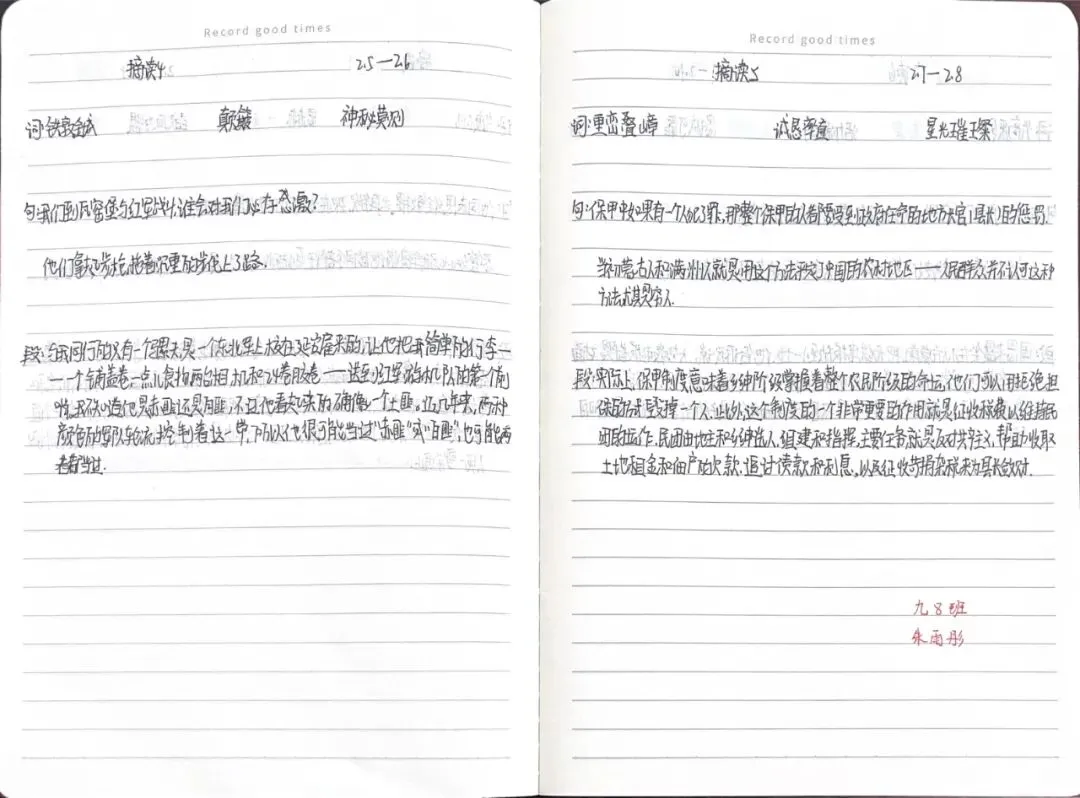 Record good times
摘读4 25—26
词: 颠簸 神秘莫测
句:我们到瓦窑堡与红军战斗,谁会对我们心存感激?
他们拿起步枪,拖着沉重的步伐上了路.
段:与我同行的只有一个骡夫是一个东北军上校在延安雇来的,让他把我简单的行李—
—一个铺盖卷一点儿食物两台相机和24卷胶卷——送至红军游击队的第一个前
哨.我不知道他是赤匪还是白匪,不过他看起来的确像一个土匪.近几年来,两种
颜色的军队轮流控制着这一带,所以他很可能当过“赤匪”或“白匪”,也可能两
者都当过.
Record good times
摘读5 27—28
词:重峦叠嶂 诚恳率直 星光璀璨
句:保甲中如果有一个人犯罪,那整个保甲的人都要受到政府任命的地方长官(县长)的惩罚.
当初蒙古人和满洲人就是用这个方法平定了中国的农村地区——人民群众并不认可这种
方法尤其是穷人.
段:实际上,保甲制度意味着乡绅阶级掌握着整个农民阶级的命运,他们可以用拒绝担
保的方式毁掉一个人.此外,这个制度的一个非常重要的作用就是征收税费以维持民
团的运作.民团由地主和乡绅选人、组建和指挥.主要任务就是反对共产主义,帮助收取
土地租金和佃户的欠款.追讨债款和利息,以及征收苛捐杂税来为县长敛财.
九8班
朱雨彤